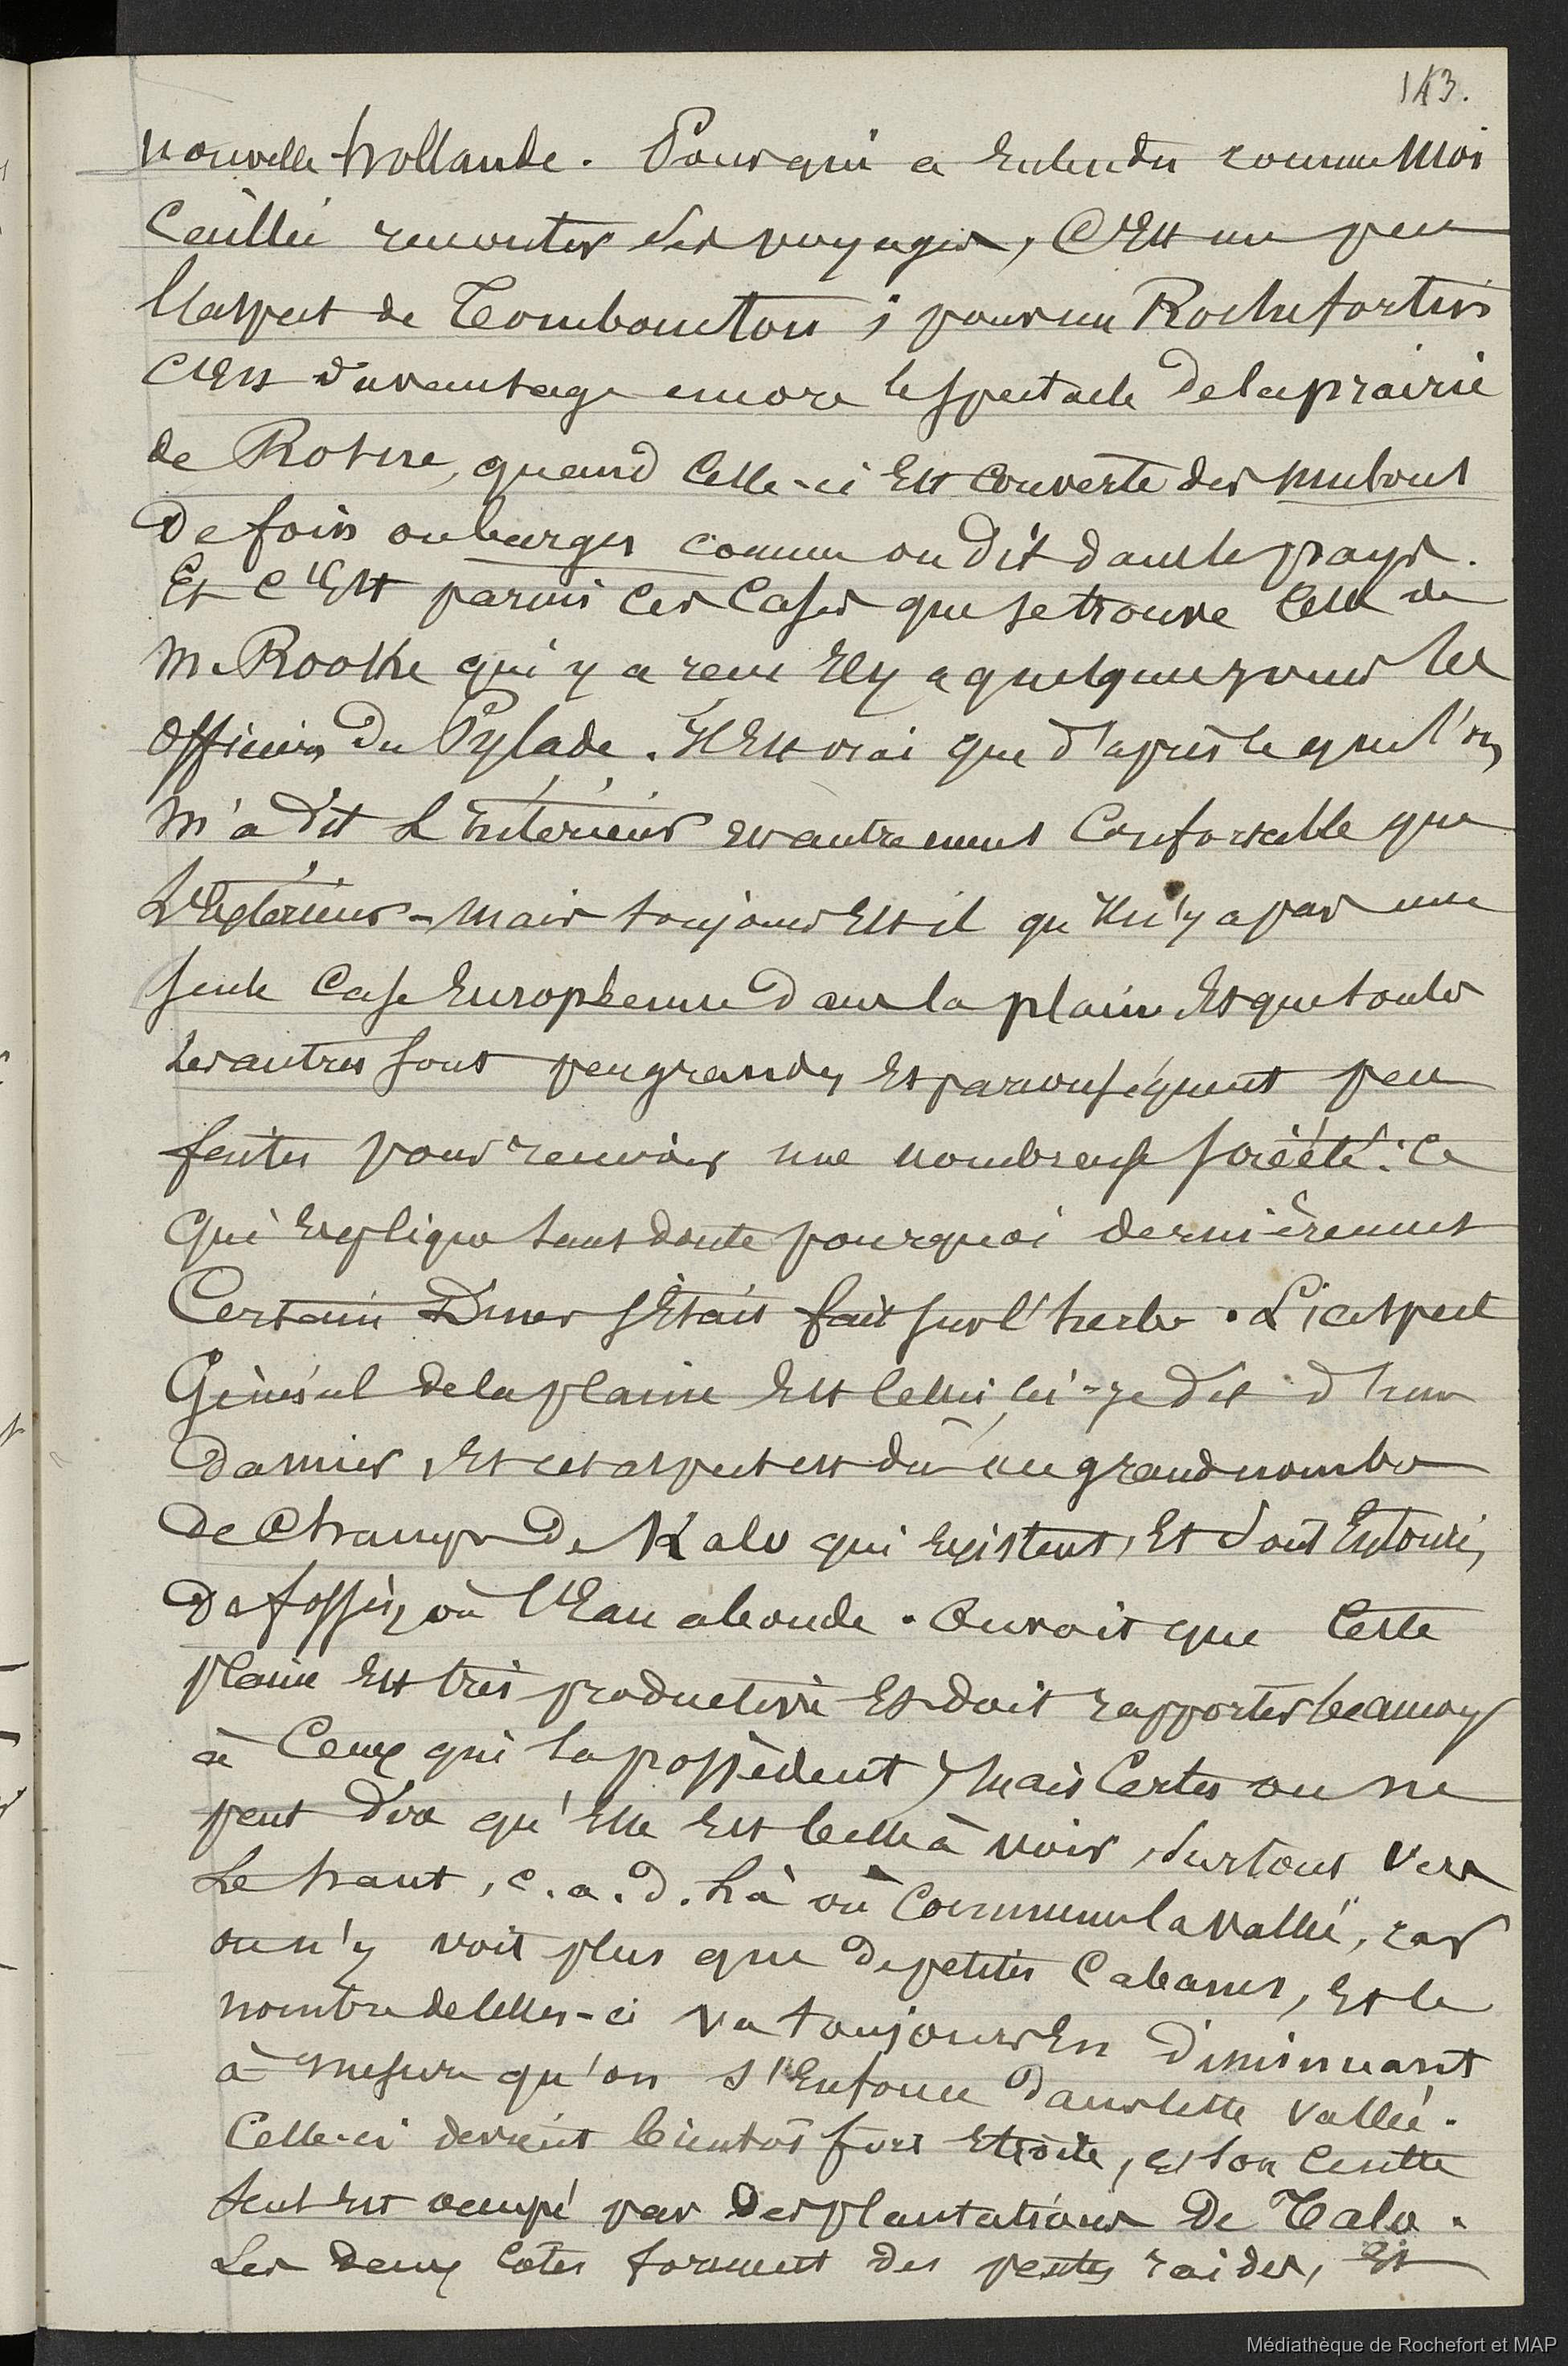 143.
nouvelle hollande. Pour qui a Entendu comme Moi
Caillié raconter ses voyages, C'Est un peu
l'aspect de Tombouctou ; pour un Rochefortin
C'Est d'avantage encore le spectacle de la prairie
de Rosne, quand Celle-ci Est Couverte des mulons
De foin ou barges comme on Dit dans le pays.
Et C'Est parmi Ces Cases que se trouve Celle de
Mr Rooke qui y a recu Il y a quelques jours les
officiers Du Pylade. Il Est vrai que d'après ce que l'on
M'a Dit L'Intérieur est autrement Confortable que
L'Extérieur - Mais toujours Est il qu'Il n'y a pas une
seule Case Européenne Dans la plaine Et que toutes
Les autres sont peu grandes Et par conséquent peu
faites pour recevoir une nombreuse société : Ce
Qui Explique sans doute pourquoi dernièrement
Certain Diner s'Etait fait sur l'herbe. L'aspect
Général de la plaine Est Celui ai-je dit d'un
Damier, Et cet aspect est dû au grand nombre
De Champs De Kalo qui Existent, Et sont Entourés
De fossés, où l'Eau abonde. On voit que Cette
plaine Est très productive Et doit rapporter beaucoup
à Ceux qui la possèdent ; Mais Certes on ne
peut Dire qu'Elle Est belle à Voir, Surtout Vers
Le haut, c. a. d. Là où Commence la Vallée, car
on n'y voit plus que De petites Cabanes, Et le
nombre de Celles-ci Va toujours En Diminuant
à mesure qu'on s'Enfonce Dans Cette Vallée.
Celle-ci devient bientôt fort Etroite, et son Centre
Seul Est occupé par Des plantations De Talo.
Les Deux Cotés forment des pentes raides, Et
Médiathèque de Rochefort et MAP